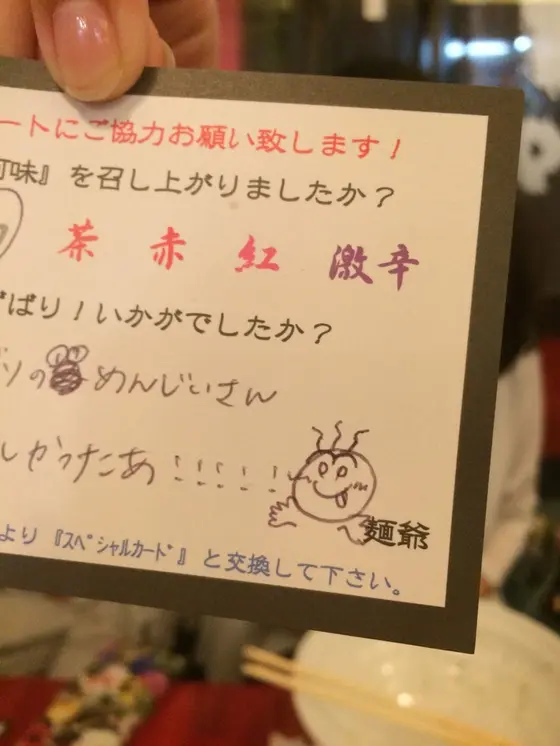 ートにご協力お願い致します！
味』を召し上がりましたか？
茶 赤 紅 激辛
ばり！いかがでしたか？
ソの めんじぃさん
しかったあ！！！！！
麺爺
より『ｽﾍﾟｼｬﾙｶｰﾄﾞ』と交換して下さい。